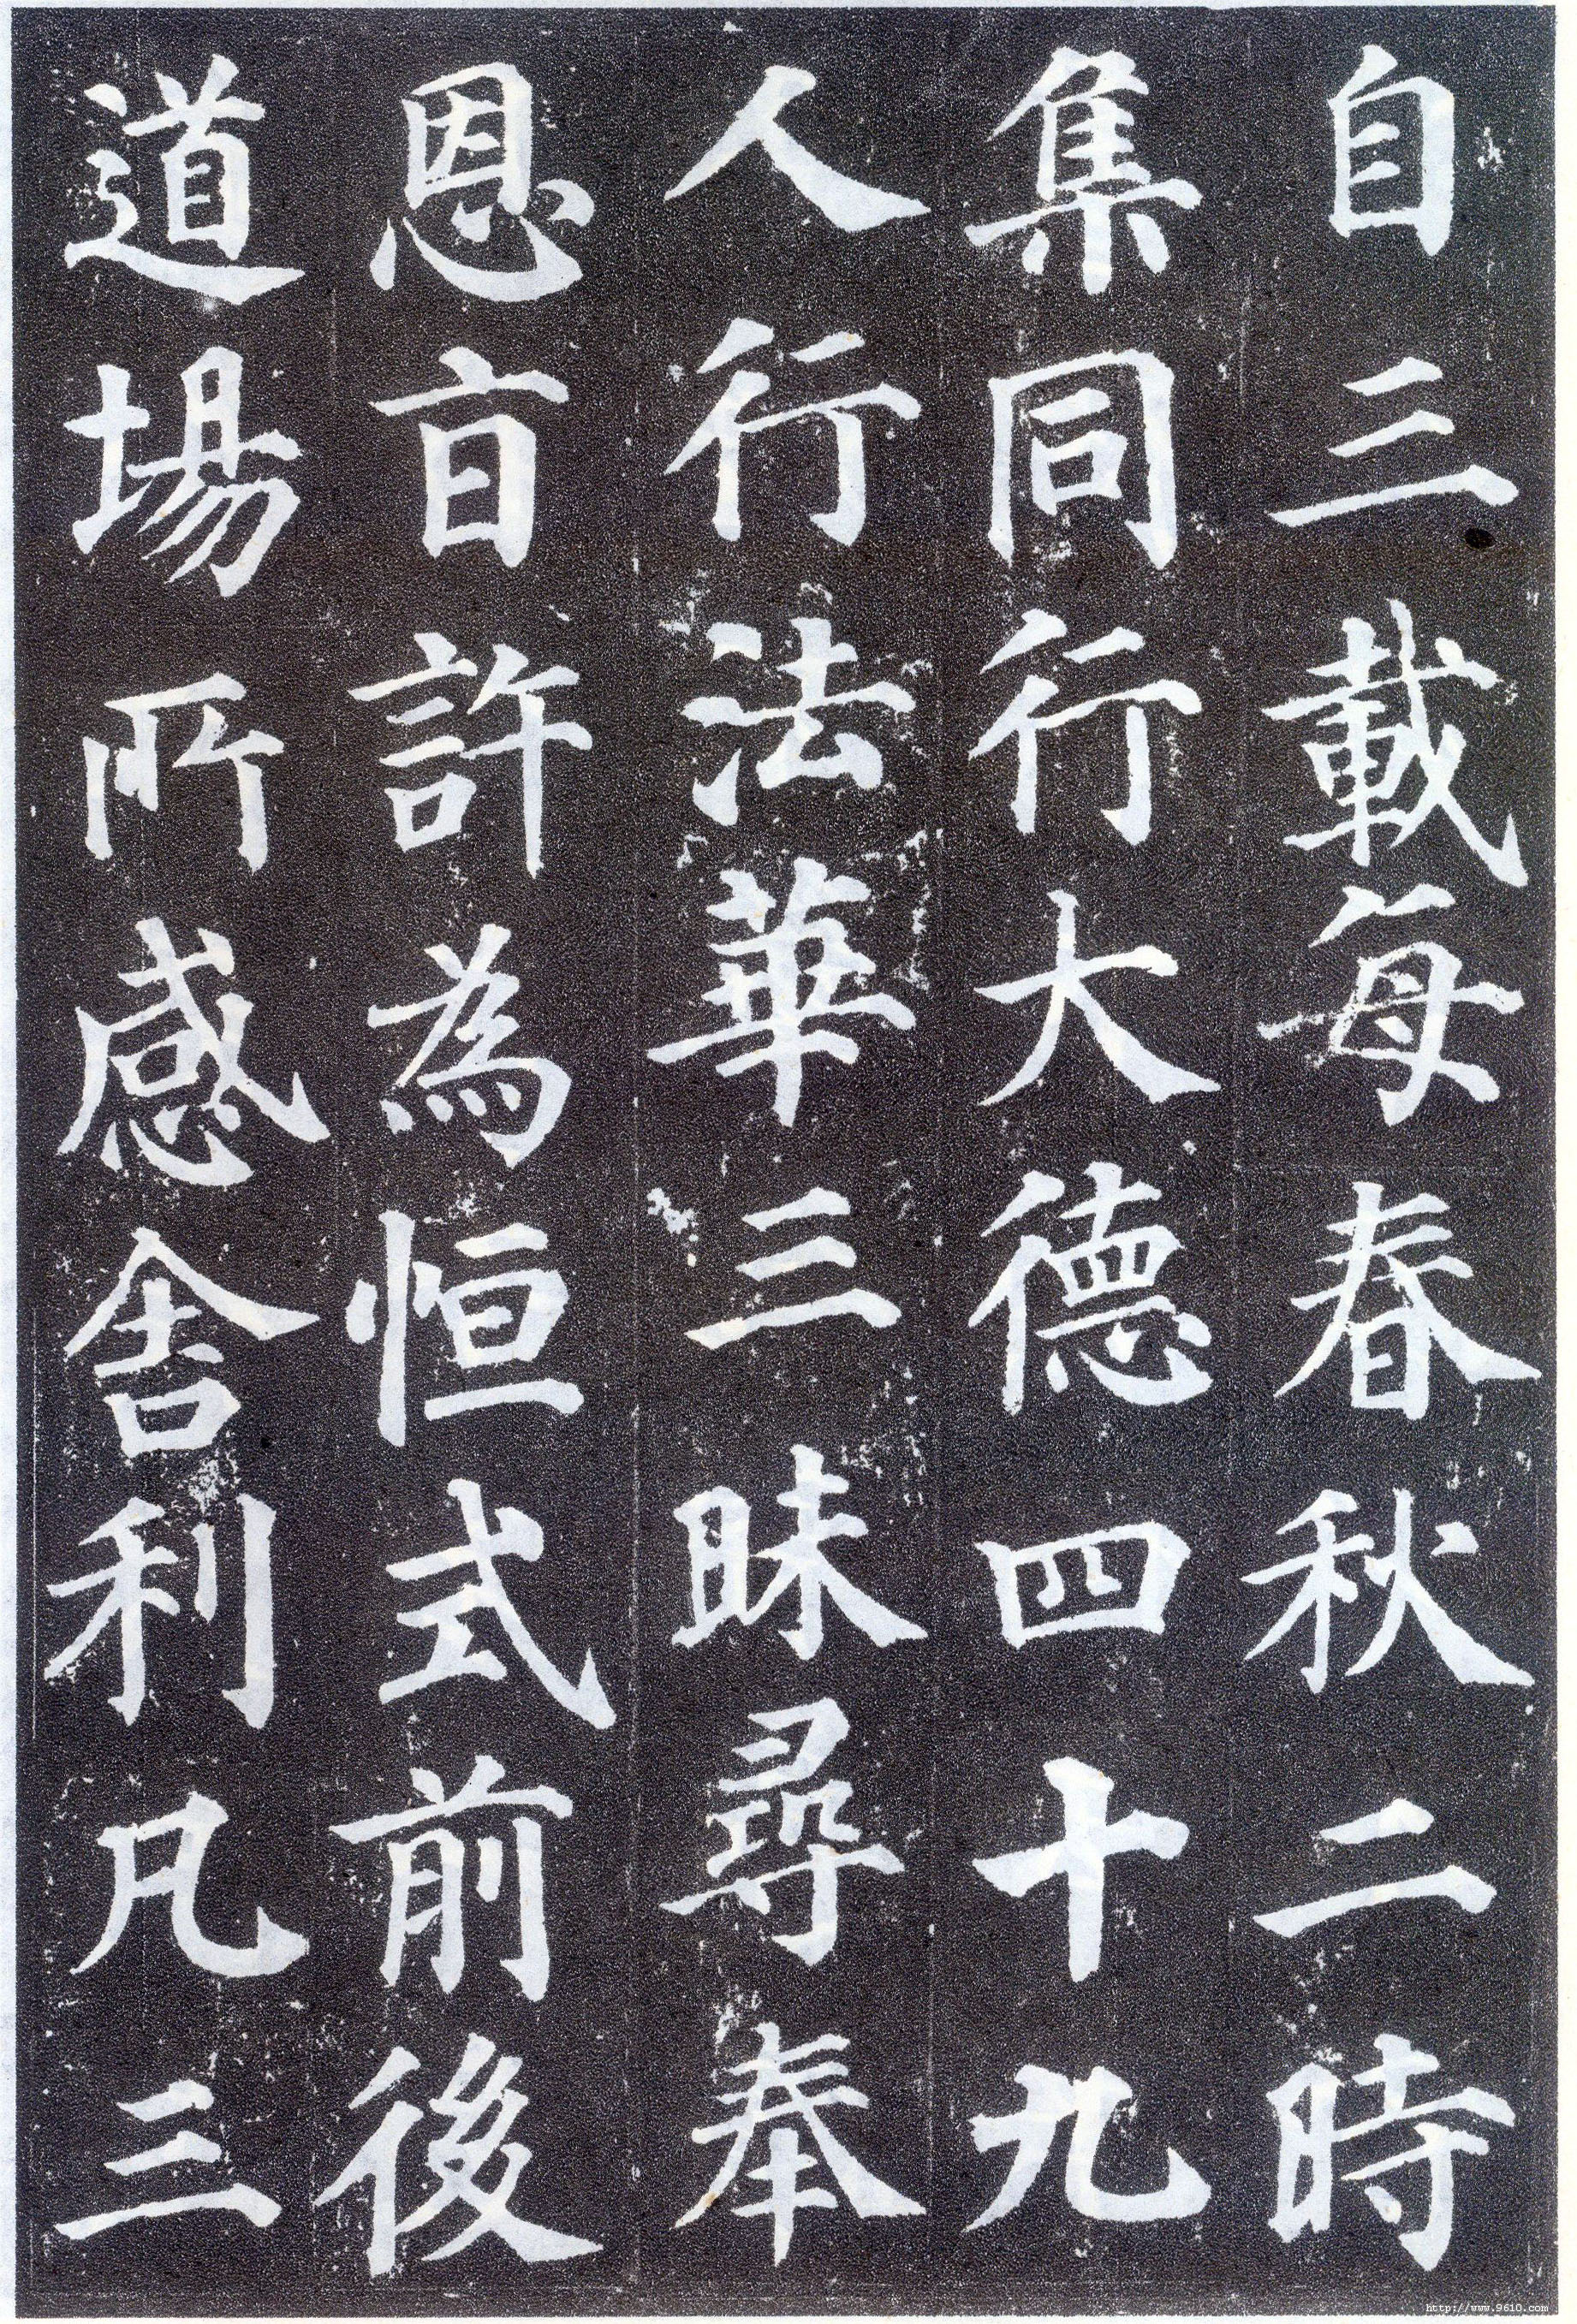 自三載每春秋二時
集同行大德四十九
人行法華三昧尋奉
恩旨許為恒式前後
道場所感舍利凡三
http://www.9610.com